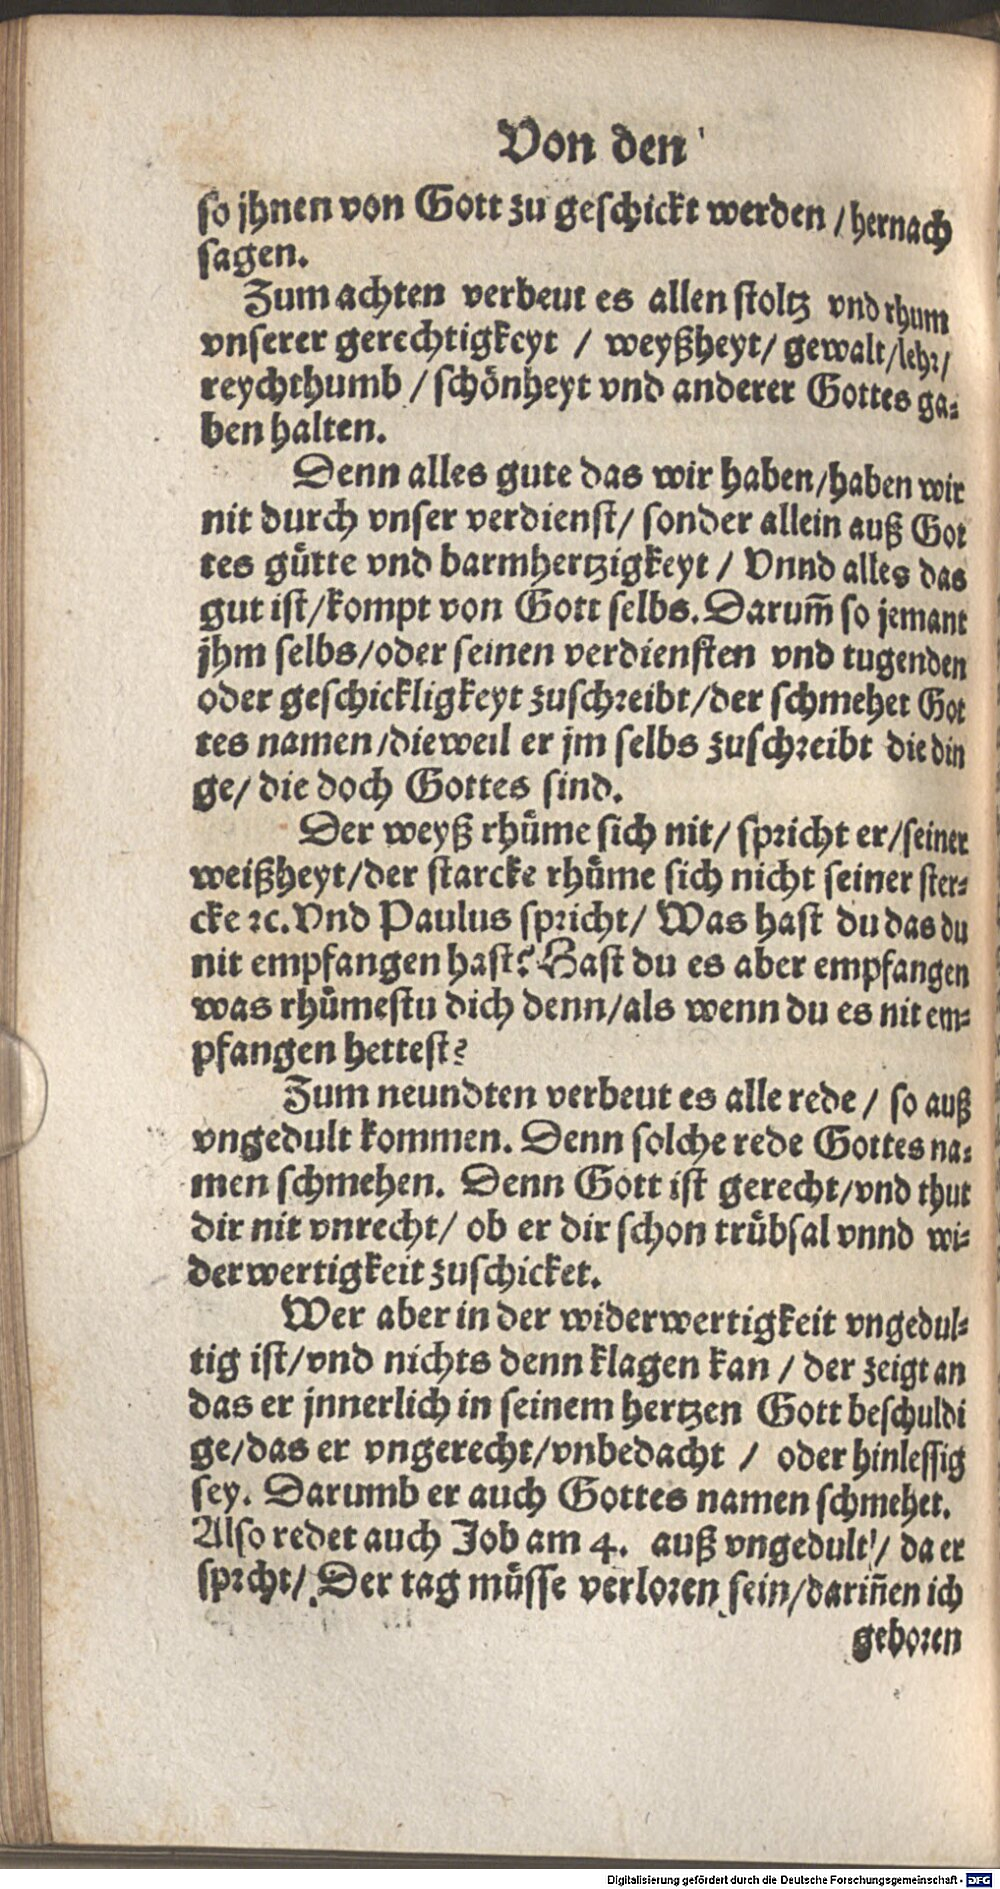 Von den
so jhnen von Gott zu geschickt werden / hernach
sagen.
Zum achten verbeut es allen stoltz vnd rhum
vnserer gerechtigkeyt / weyßheyt/ gewalt/lehr/
reychthumb / schönheyt vnd anderer Gottes ga-
ben halten.
Denn alles gute das wir haben/haben wir
nit durch vnser verdienst/ sonder allein auß Got
tes guͤtte vnd barmhertzigkeyt / Vnnd alles das
gut ist/kompt von Gott selbs. Darum̃ so jemant
jhm selbs/oder seinen verdiensten vnd tugenden
oder geschickligkeyt zuschreibt/der schmehet Got
tes namen/dieweil er jm selbs zuschreibt die din
ge/ die doch Gottes sind.
Der weyß rhuͤme sich nit/ spricht er/seiner
weißheyt/der starcke rhuͤme sich nicht seiner ster-
cke ꝛc. Vnd Paulus spricht/ Was hast du das du
nit empfangen hast? Hast du es aber empfangen
was rhuͤmestu dich denn/als wenn du es nit em-
pfangen hettest?
Zum neundten verbeut es alle rede / so auß
vngedult kommen. Denn solche rede Gottes na-
men schmehen. Denn Gott ist gerecht/vnd thut
dir nit vnrecht/ ob er dir schon truͤbsal vnnd wi-
derwertigkeit zuschicket.
Wer aber in der widerwertigkeit vngedul-
tig ist/vnd nichts denn klagen kan / der zeigt an
das er jnnerlich in seinem hertzen Gott beschuldi
ge/das er vngerecht/vnbedacht / oder hinlessig
sey. Darumb er auch Gottes namen schmehet.
Also redet auch Job am 4. auß vngedult/ da er
sprcht/ Der tag muͤsse verloren sein/darin̄en ich
geboren
Digitalisierung gefördert durch die Deutsche Forschungsgemeinschaft - DFG